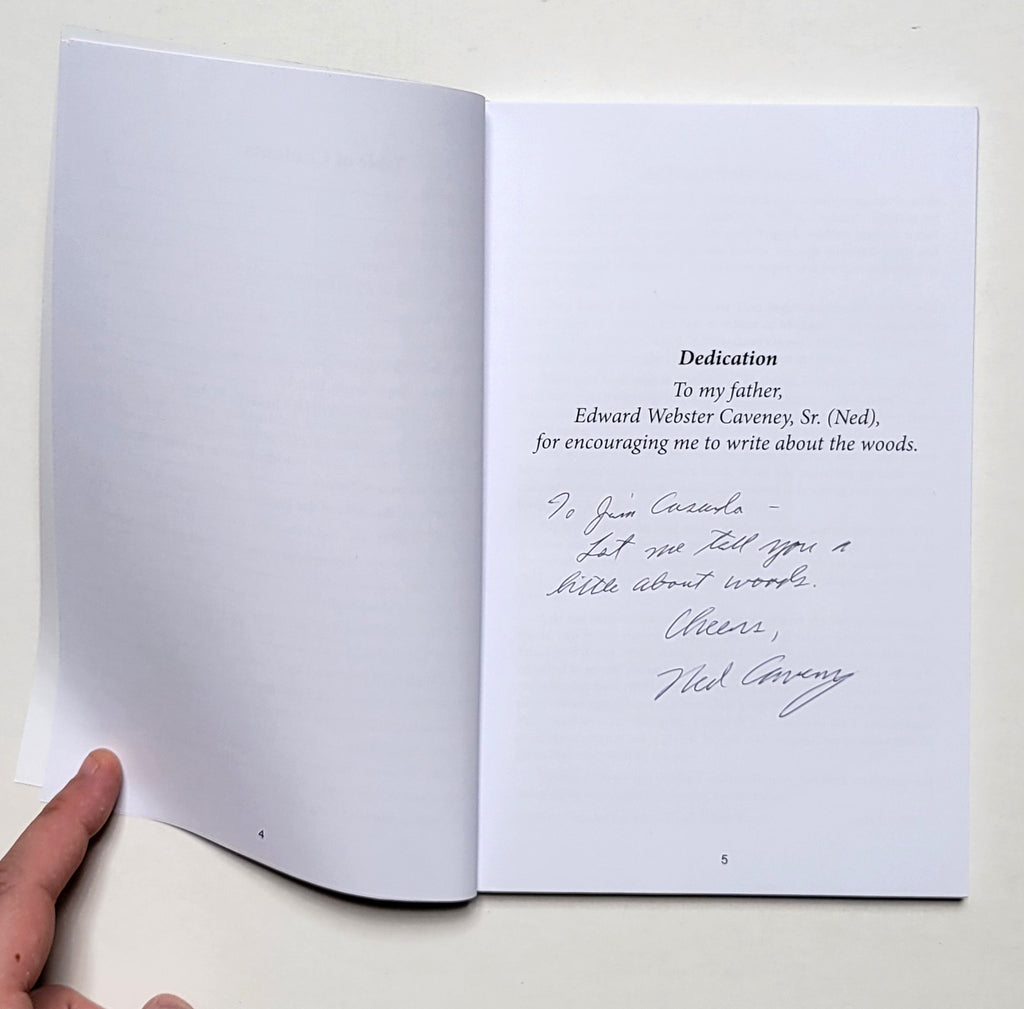 4
Dedication
To my father,
Edward Webster Caveney, Sr. (Ned),
for encouraging me to write about the woods.
To Jim
Let me tell you a
little about woods.
Cheers,
Ned Caveney
5